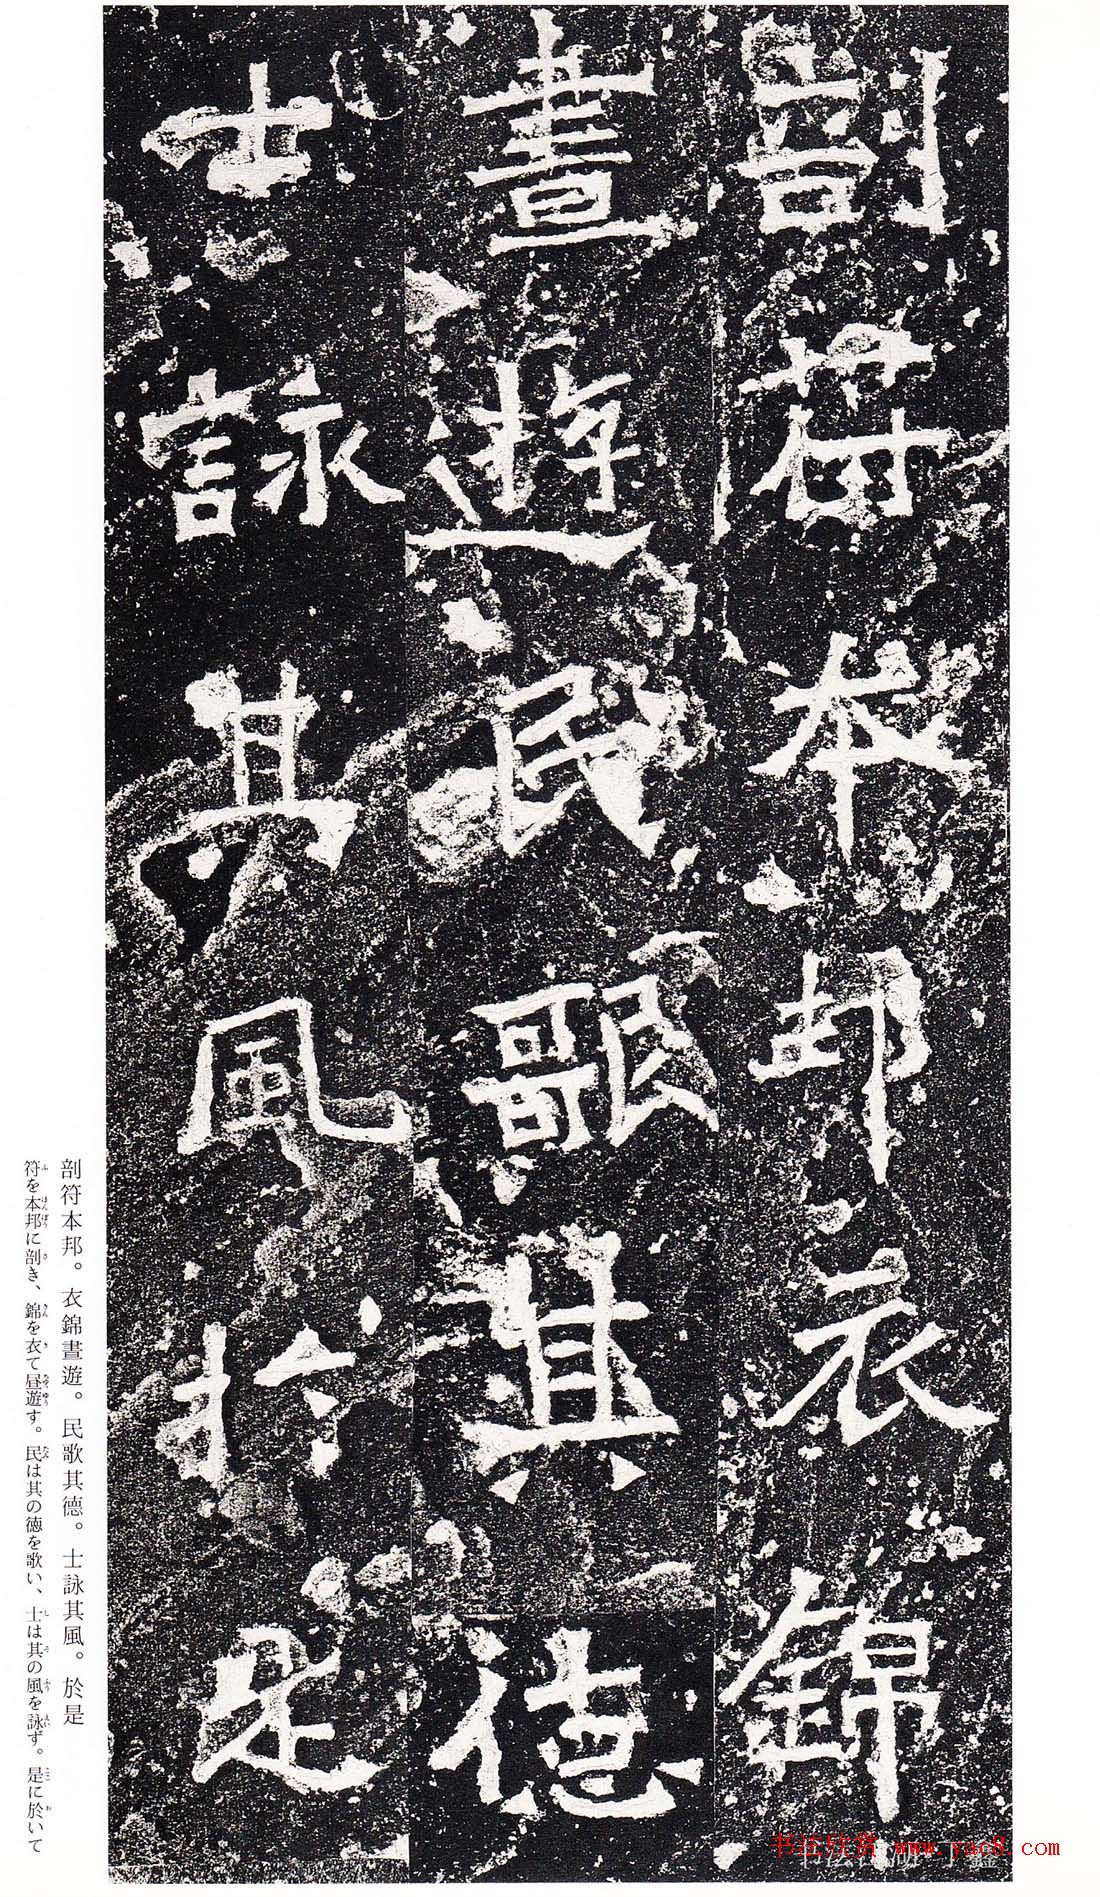 剖符本邦衣錦
晝遊民歌其德
士詠其風於是
剖符本邦。衣錦晝遊。民歌其德。士詠其風。於是
符を本邦に剖き、錦を衣て昼遊す。民は其の徳を歌い、士は其の風を詠ず。是に於いて
书法欣赏 www.yac8.com